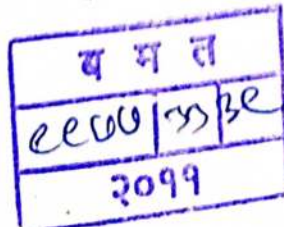 ब म त
९९७७ ३३ ३९
२०११